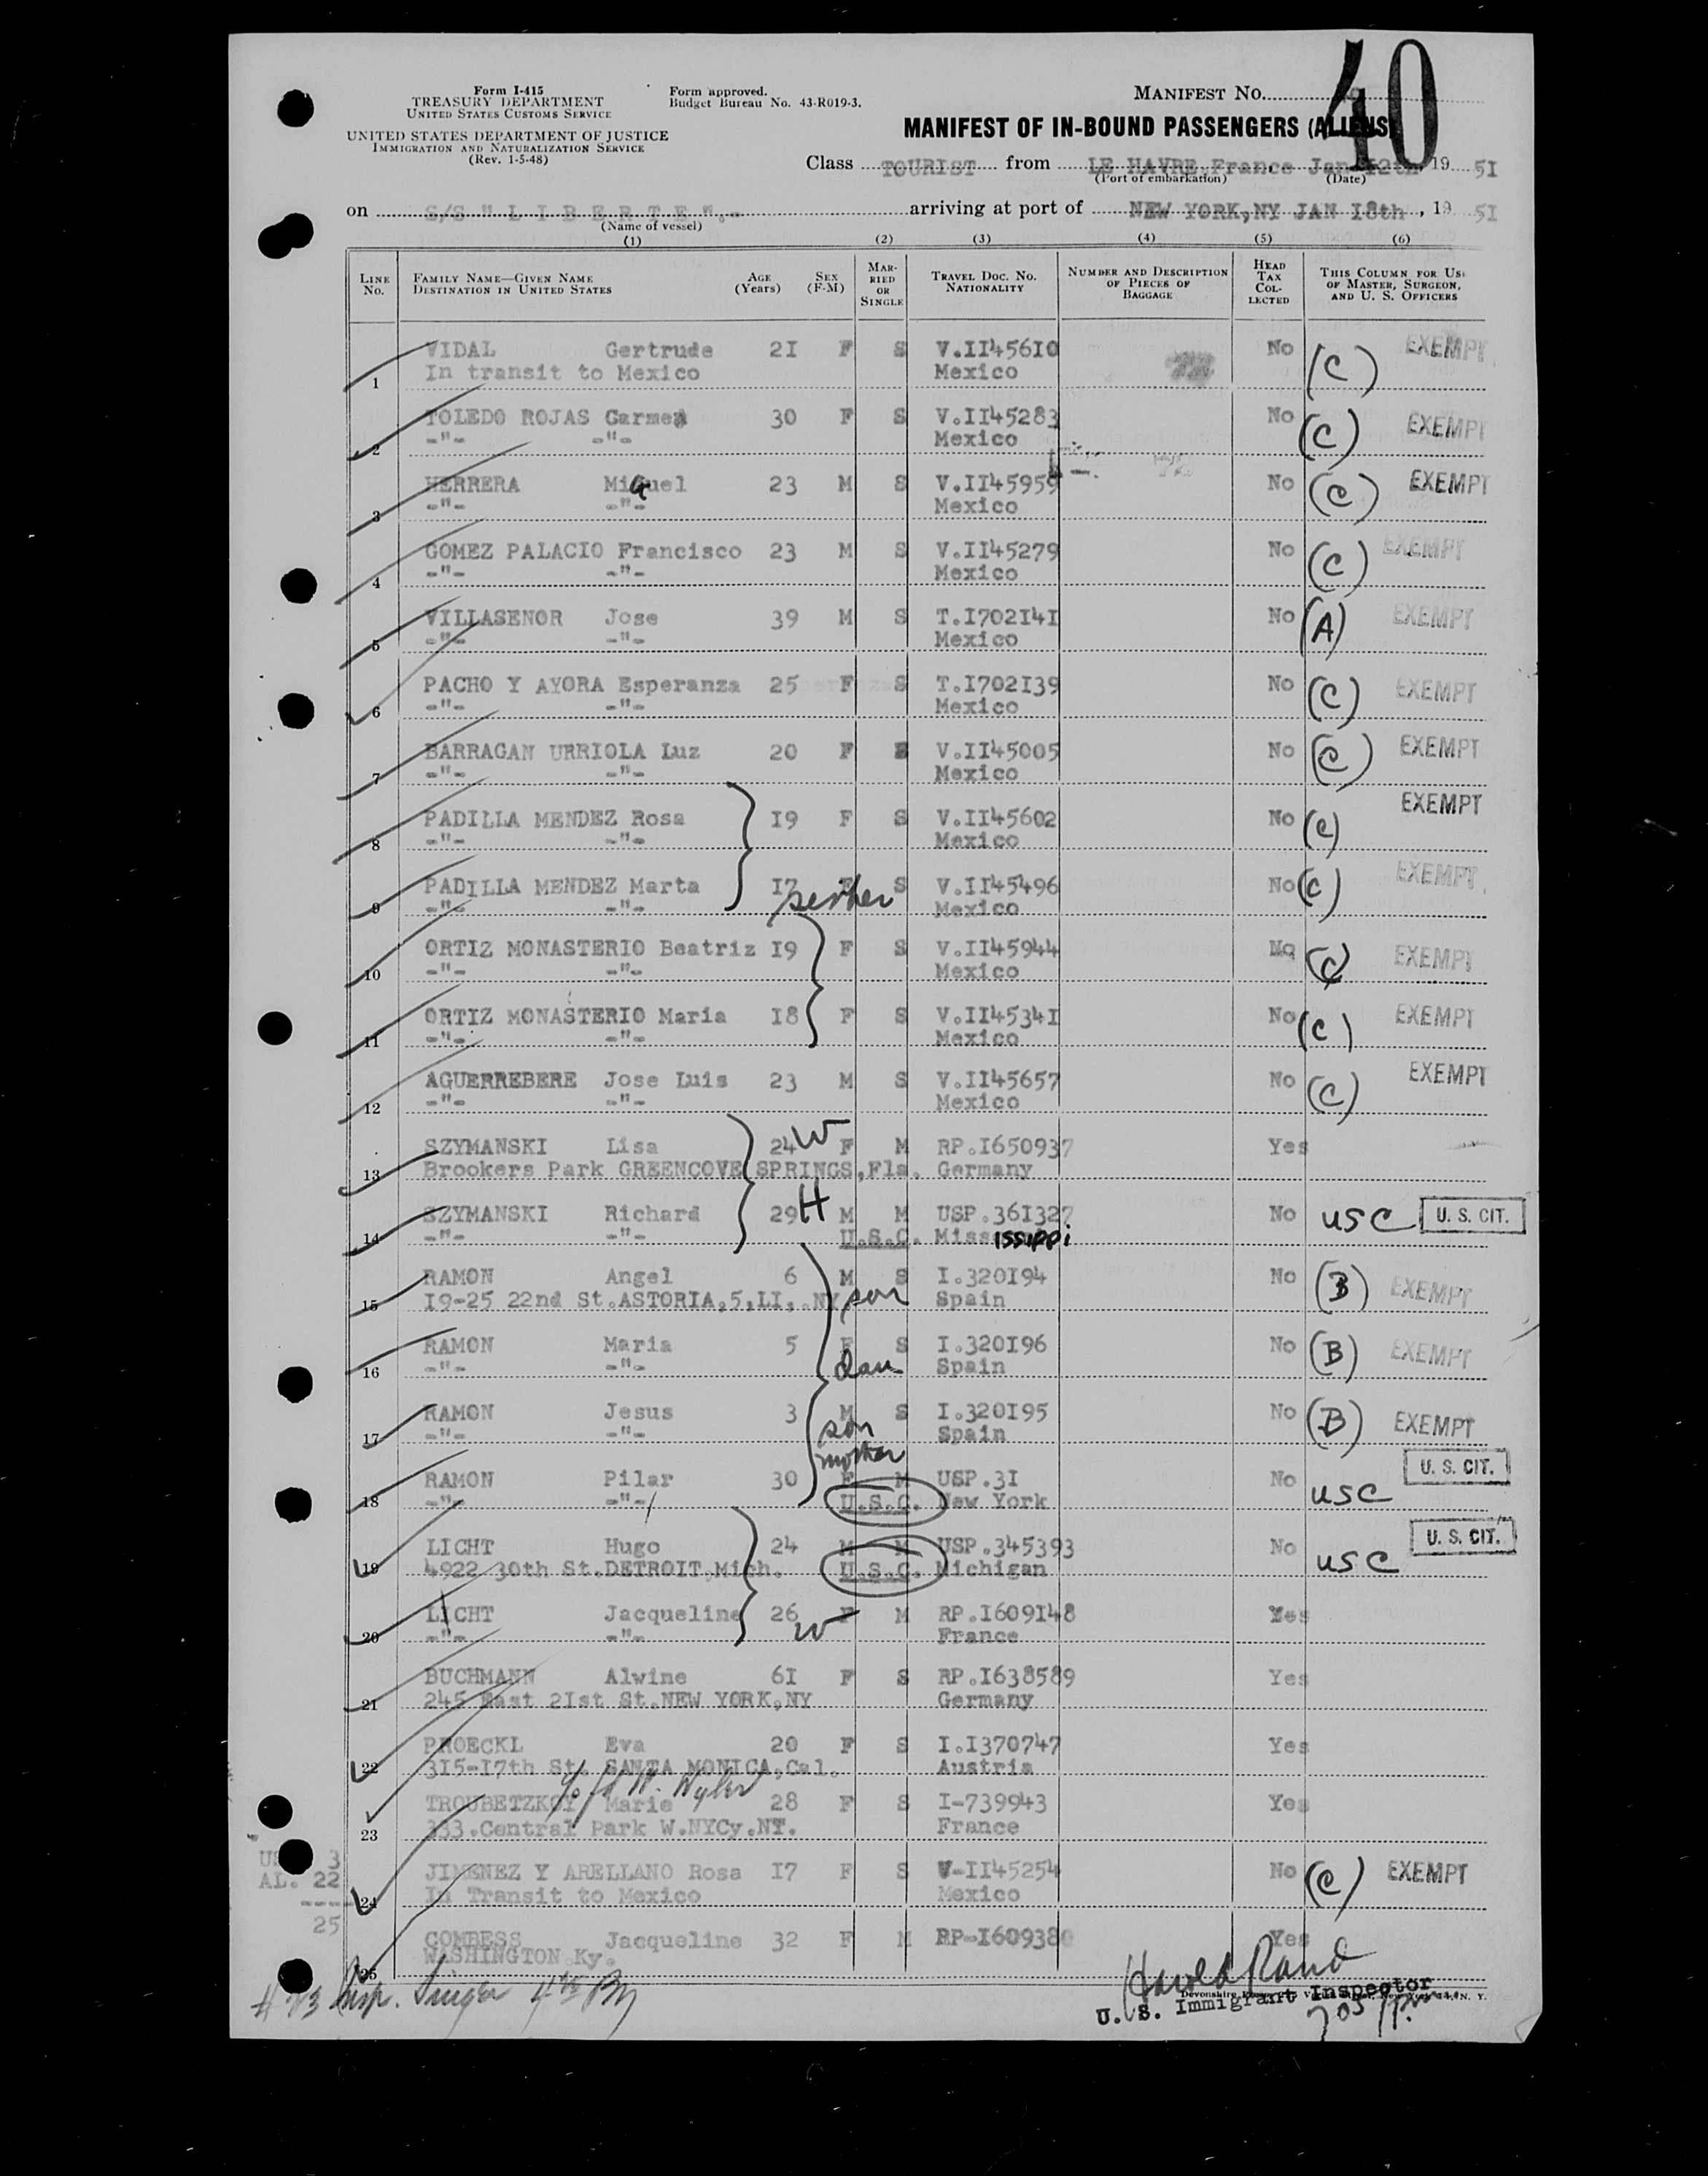 40
Form I-415
TREASURY DEPARTMENT
UNITED STATES CUSTOMS SERVICE
UNITED STATES DEPARTMENT OF JUSTICE
IMMIGRATION AND NATURALIZATION SERVICE
(Rev. 1-5-48)
Form approved.
Budget Bureau No. 43-R019-3.
MANIFEST NO.
MANIFEST OF IN-BOUND PASSENGERS (ALIENS)
Class TOURIST from LE HAVRE,France Jan 12th, 19 51
(Port of embarkation) (Date)
on S/S " L I B E R T E ".- arriving at port of NEW YORK,NY JAN I8th , 19 5I
(Name of vessel)
(1) (2) (3) (4) (5) (6)
LINE NO. FAMILY NAME—GIVEN NAME DESTINATION IN UNITED STATES AGE (Years) SEX (F-M) MARRIED OR SINGLE TRAVEL DOC. NO. NATIONALITY NUMBER AND DESCRIPTION OF PIECES OF BAGGAGE HEAD TAX COLLECTED THIS COLUMN FOR USE OF MASTER, SURGEON, AND U. S. OFFICERS
VIDAL Gertrude 2I F S V.II456I0 No (C) EXEMPT
1 In transit to Mexico Mexico
TOLEDO ROJAS Carmen 30 F S V.II45283 No (C) EXEMPT
2 -"- -"- Mexico
HERRERA Miguel 23 M S V.II45959 No (C) EXEMPT
3 -"- -"- Mexico
GOMEZ PALACIO Francisco 23 M S V.II45279 No (C) EXEMPT
4 -"- -"- Mexico
VILLASENOR Jose 39 M S T.I702I4I No (A) EXEMPT
5 -"- -"- Mexico
PACHO Y AYORA Esperanza 25 F S T.I702I39 No (C) EXEMPT
6 -"- -"- Mexico
BARRAGAN URRIOLA Luz 20 F S V.II45005 No (C) EXEMPT
7 -"- -"- Mexico
PADILLA MENDEZ Rosa I9 F S V.II45602 No (C) EXEMPT
8 -"- -"- Mexico
PADILLA MENDEZ Marta I7 F S V.II45496 No (C) EXEMPT
9 -"- -"- Mexico
ORTIZ MONASTERIO Beatriz I9 F S V.II45944 No (C) EXEMPT
10 -"- -"- Mexico
ORTIZ MONASTERIO Maria I8 F S V.II4534I No (C) EXEMPT
11 -"- -"- Mexico
AGUERREBERE Jose Luis 23 M S V.II45657 No (C) EXEMPT
12 -"- -"- Mexico
SZYMANSKI Lisa 24 W F M RP.I650937 Yes
13 Brookers Park GREENCOVE SPRINGS,Fla. Germany
SZYMANSKI Richard 29 H M M USP.36I327 No USC U. S. CIT.
14 -"- -"- U.S.C. Mississippi
RAMON Angel 6 M S I.320I94 No (B) EXEMPT
15 I9-25 22nd St.ASTORIA,5,LI,.NY son Spain
RAMON Maria 5 F S I.320I96 No (B) EXEMPT
16 -"- -"- dau Spain
RAMON Jesus 3 M S I.320I95 No (B) EXEMPT
17 -"- -"- son Spain
mother
RAMON Pilar 30 F M USP.3I No USC U. S. CIT.
18 -"- -"- U.S.C. New York
LICHT Hugo 24 M M USP.345393 No USC U. S. CIT.
19 4922 30th St.DETROIT,Mich. U.S.C. Michigan
LICHT Jacqueline 26 W F M RP.I609I48 Yes
20 -"- -"- France
BUCHMANN Alwine 6I F S RP.I638589 Yes
21 245 East 2Ist St.NEW YORK,NY Germany
PROECKL Eva 20 F S I.I370747 Yes
22 3I5-I7th St. SANTA MONICA,Cal. Austria
TROUBETZKOY Marie 28 F S I-739943 Yes
23 333.Central Park W.NYCy.NY. France
JIMENEZ Y ARELLANO Rosa I7 F S V-II45254 No (C) EXEMPT
24 In Transit to Mexico Mexico
AL. 22
25
COMBESS Jacqueline 32 F M RP-I609380 Yes
25 WASHINGTON Ky.
Harold Rand
U. S. Immigrant Inspector